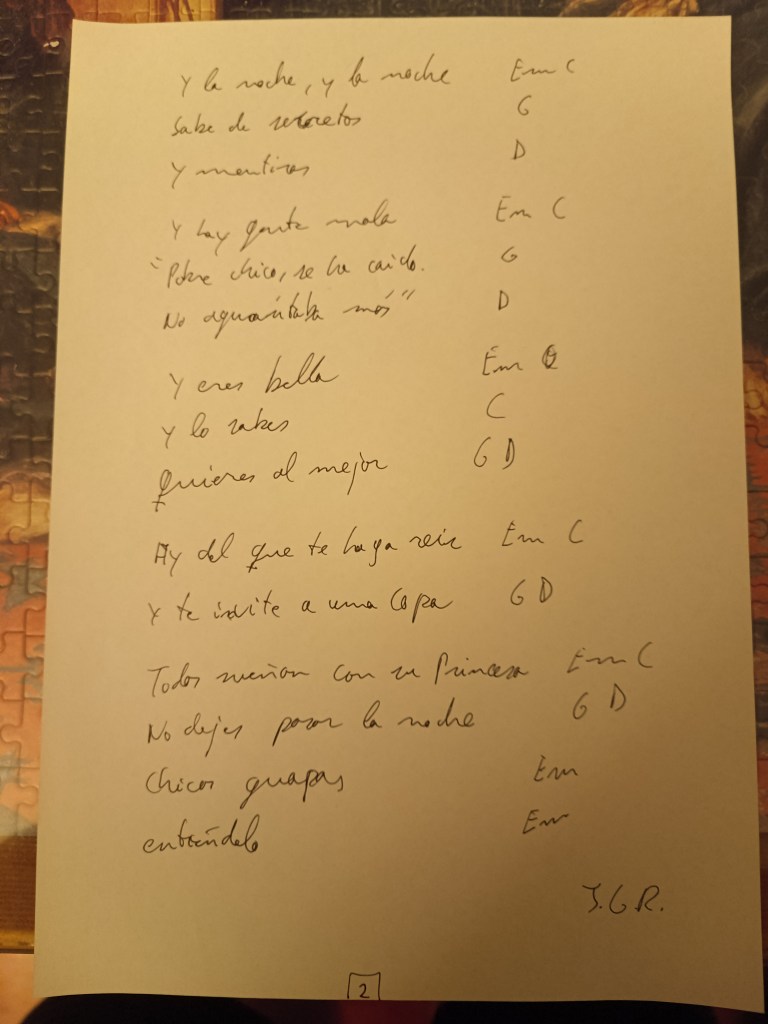 Y la noche, y la noche Em C
Sabe de secretos G
Y mentiras D
Y hay gente mala Em C
"Pobre chico, se ha caído. G
No aguantaba más" D
Y eres bella Em
Y lo sabes C
Quieres al mejor G D
Ay del que te haga reir Em C
Y te invite a una copa G D
Todos sueñan con su Princesa Em C
No dejes pasar la noche G D
Chicas guapas Em
entiéndelo Em
J.G.R.
2